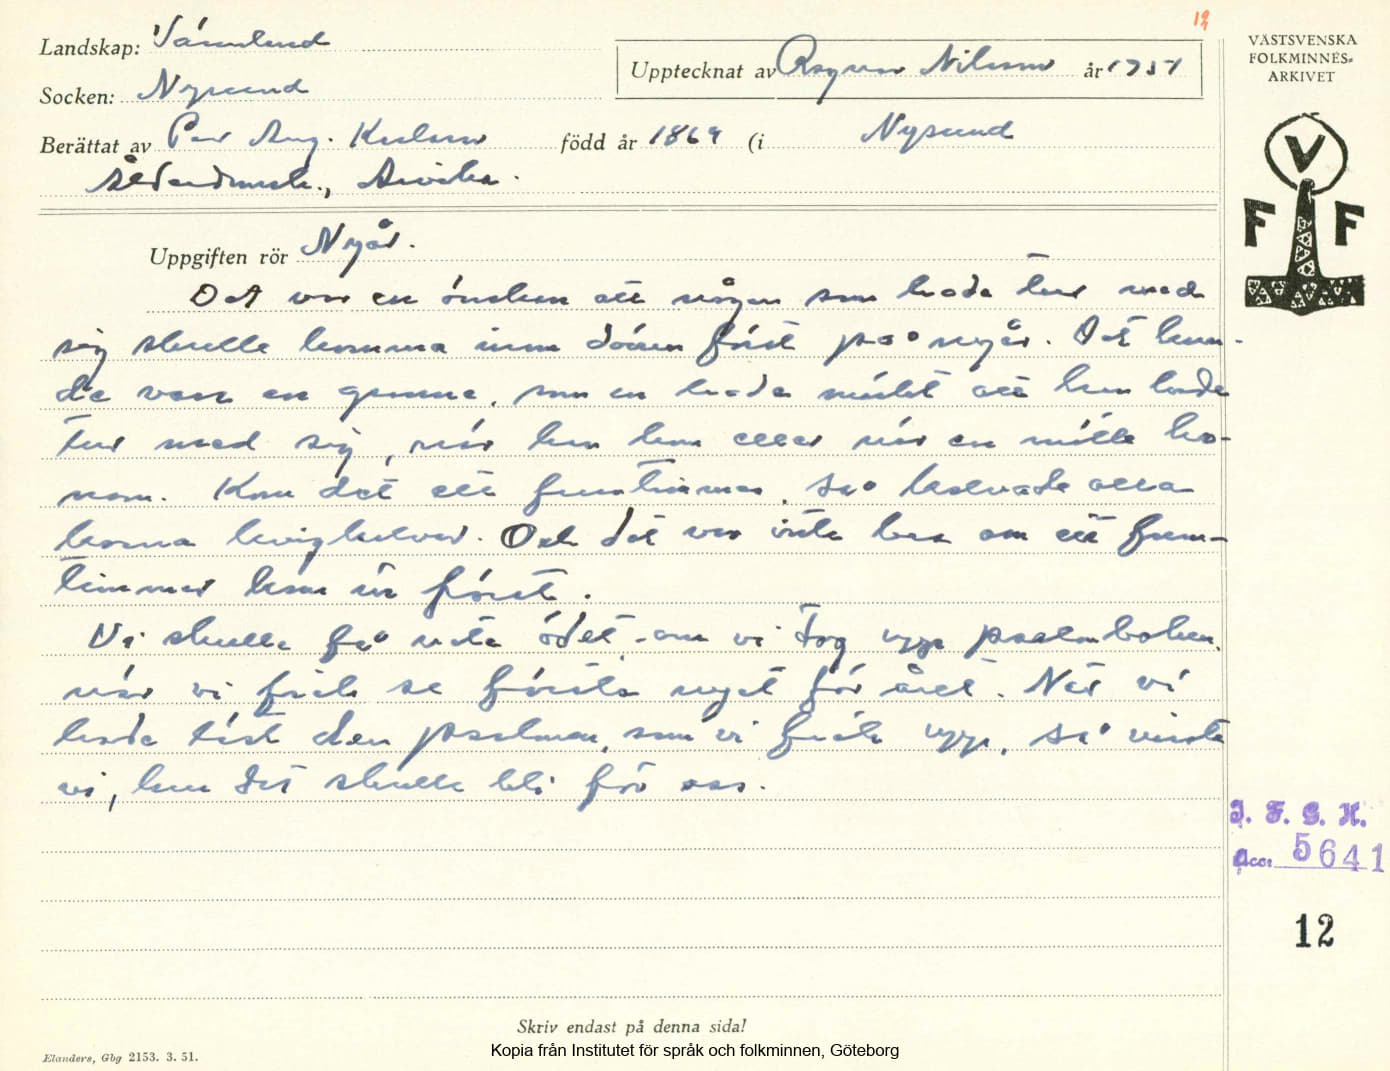 19
Landskap: Värmland
Upptecknat av Ragnar Nilsson år 1951
VÄSTSVENSKA
FOLKMINNES=
ARKIVET
Socken: Nysund
Berättat av Per Aug. född år 1869 (i Nysund
Ålderdomsh., Arvika.
V
F F
Uppgiften rör Nyår.
Det var en önskan att någon som hade tur med
sig skulle komma inom dören först på nyår. Det kun-
de vara en gumme, som en hade märkt att han hade
tur med sig, när han kom eller när en mötte ho-
nom. Kom det ett fruntimmer, så kalvade alla
korna kvigkalvar. Och det var inte bra om ett frun-
timmer kom in först.
Vi skulle få veta ödet, om vi tog upp psalmboken,
när vi fick se första nyet för året. När vi
hade läst den psalmen, som vi fick upp, så visste
vi, hur det skulle bli för oss.
I. F. G. H.
Acc: 5641
12
Skriv endast på denna sida!
Elanders, Gbg 2153. 3. 51.
Kopia från Institutet för språk och folkminnen, Göteborg